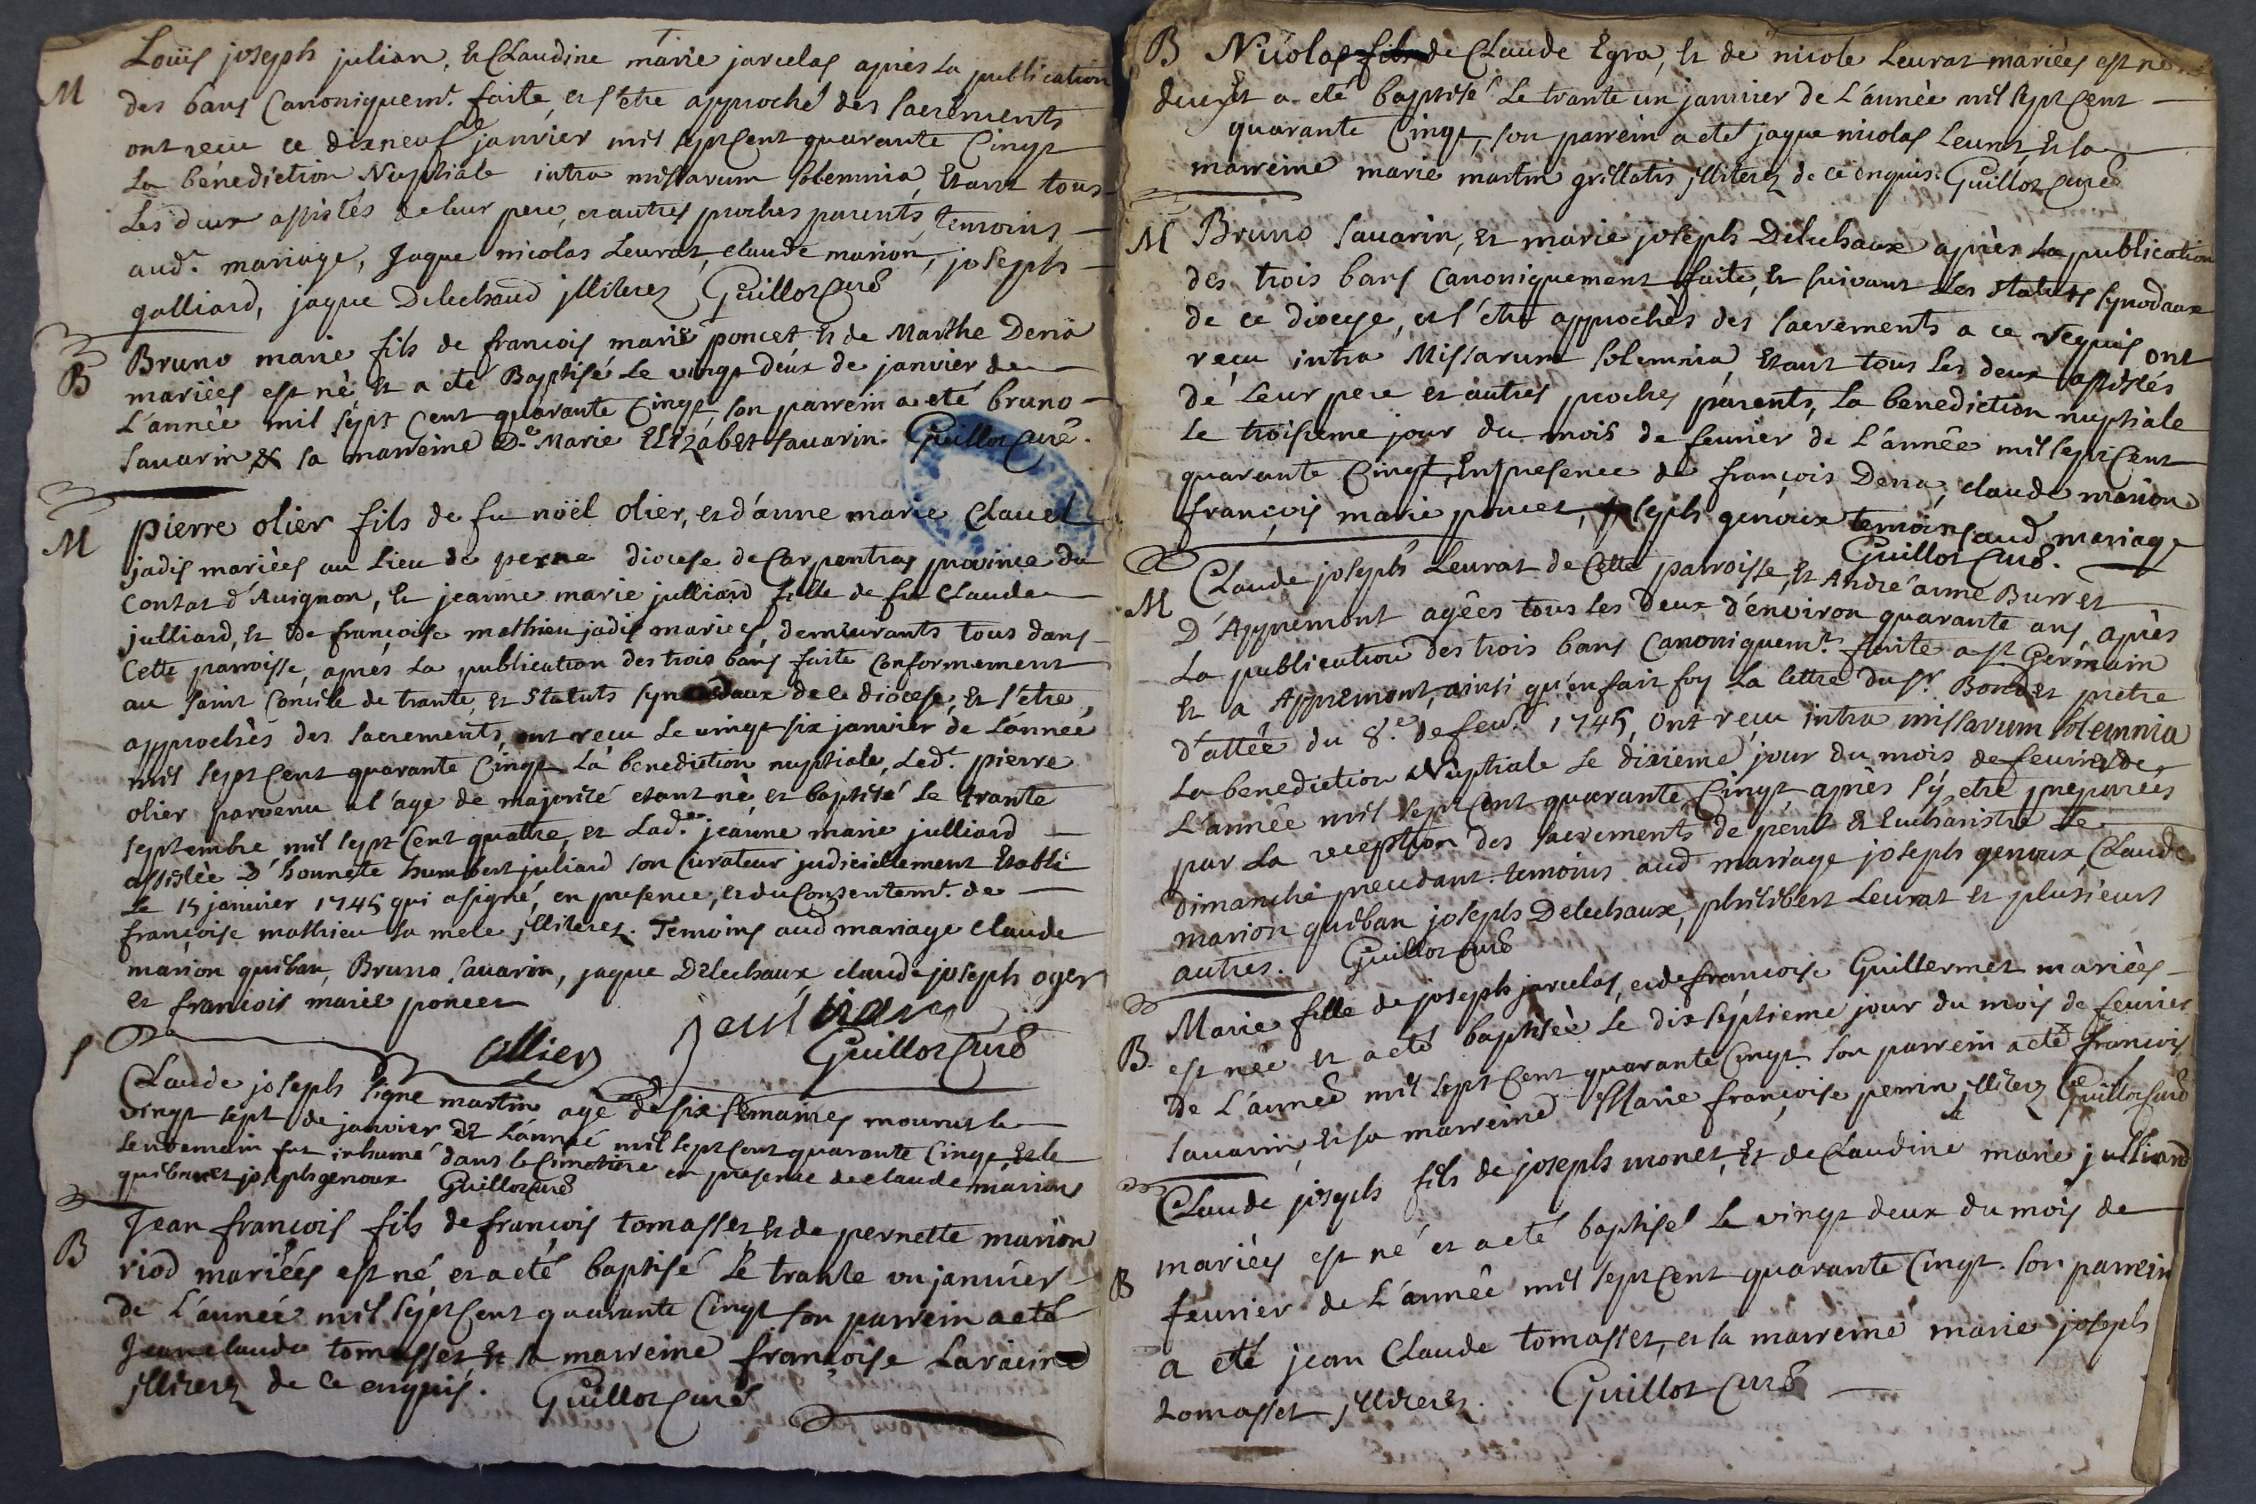 Loüis joseph julian, et CLaudine marie jarcelas apriès La publication
M
des bans Canoniquemt. faite, et s'être approché des sacrements
ont reçu ce dixneuf janvier mil sept Cent quarante Cinqt
La bénediction Nuptiale intra missarum solemnia, Etant tous
Les deux assistés de leur pere, et autres proches parents, temoins
aud.t mariage, Jaque nicolas Leurat, claude marion, joseph
galliard, jaque Delechaud jlliterez Guillot Curé
B
Bruno marie fils de francois marie poncet et de Marthe Denia
mariées est né, et a été Baptisé Le vingt deux de janvier de
L'année mil sept Cent quarante Cinqt son parrein a eté bruno
sauarin & sa marreine D.e Marie ELizabet sauarin. Guillot Curé.
M
pierre olier fils de fu noël olier, et d'anne marie Clauel
jadis mariées au Lieu de perne diocese de Carpentras province du
Contat d'Auignon, et jeanne marie julliard fille de fu Claude
julliard, et de francoise mathieu jadis mariées, demeurants tous dans
Cette parroisse, après La publication des trois bans faite Conformement
au saint Concile de trante, et Statuts synodaux de Ce diocese, et s'être
approchès des sacrements, ont reçu Le vingt six janvier de L'année
mil sept Cent quarante Cinqt La benediction nuptiale, Led.t pierre
olier parvenu a l'age de majorité etant né et baptisé Le trante
septembre mil sept Cent quattre, et Lad.te jeanne marie julliard
assistée D'honnete humbert juliard son Curateur judiciellement Etabli
Le 15 janvier 1745 qui a signé, en presence, et du Consentemt. de
françoise mathieu sa mere jlliterez. Temoins aud mariage Claude
marion quiban, Bruno sauarin, jaque Delechaux, claude joseph oger
et francois marie poncet
ollier jeulliard
Guillot Curé
S
CLaude joseph signe martin agé de six semaines mourut Le
vingt sept de janvier de L'année mil sept Cent quarante Cinqt, et le
Lendemain fut inhumé dans le Cimetiere en presence de claude marion
quiban et joseph genoux Guillot Curé
B
Jean francois fils de francois tomasset et de pernette marion
riod mariées est né et a eté baptisé Le trante un janvier
de L'année mil sept Cent quarante Cinqt son parrein a eté
Jean claude tomasset, et sa marreine françoise Laracine
jlliterez de Ce enquis. Guillot Curé
B
Nicolas fils de CLaude Egra, et de nicole Leurat mariées est né
et a eté baptisé Le trante un janvier de L'année mil sept Cent
quarante Cinqt, son parrein a eté jaque nicolas Leurat, et sa
marreine marie martin grillatis jlliterez de Ce enquis. Guillot Curé
M
Bruno sauarin, et marie joseph Delechaux après La publication
des trois bans Canoniquement faite, et suivant Les statuts synodaux
de ce diocese, et s'être approchès des sacrements a ce requis ont
reçu intra Missarum solemnia, etant tous Les deux assistés
de Leur pere et autres proches parents, La benediction nuptiale
Le troisieme jour du mois de feurier de L'année mil sept Cent
quarante Cinqt, En presence de françois Denia, claude marion
françois marie poncet, joseph genoux temoins aud mariage
Guillot Curé.
M
CLaude joseph Leurat de Cette parroisse, et André anne Burret
D'Appremont agées tous Les deux d'environ quarante ans, après
La publication des trois bans Canoniquemt. faite a st Germain
et a Appremont, ainsi qu'en fait foy La lettre du sr. Bondet pretre
d'attée du 8.e de feur. 1745, ont reçu intra missarum solemnia
La benediction Nuptiale Le dixieme jour du mois de feurier de
L'année mil sept Cent quarante Cinqt après s'y etre preparées
par La reception des sacrements de penit et Eucharistie Le
dimanche precedant. temoins aud mariage joseph genoux, CLaude
marion quiban joseph Delechaux, philibert Leurat et plusieurs
autres. Guillot Curé
B
Marie fille de joseph jarcelas, et de francoise Guillermet mariées
est née et a eté baptisée Le dix septieme jour du mois de feurier
de L'année mil sept Cent quarante Cinqt son parrein a eté francois
sauarin, et sa marreine Marie françoise perrin jlliterez Guillot Curé
B
CLaude joseph fils de joseph monet, et de CLaudine marie julliard
mariées est né et a eté baptisé Le vingt deux du mois de
feurier de L'année mil sept Cent quarante Cinqt. son parrein
a eté jean CLaude tomasset, et sa marreine marie joseph
tomasset jlliterez. Guillot Curé